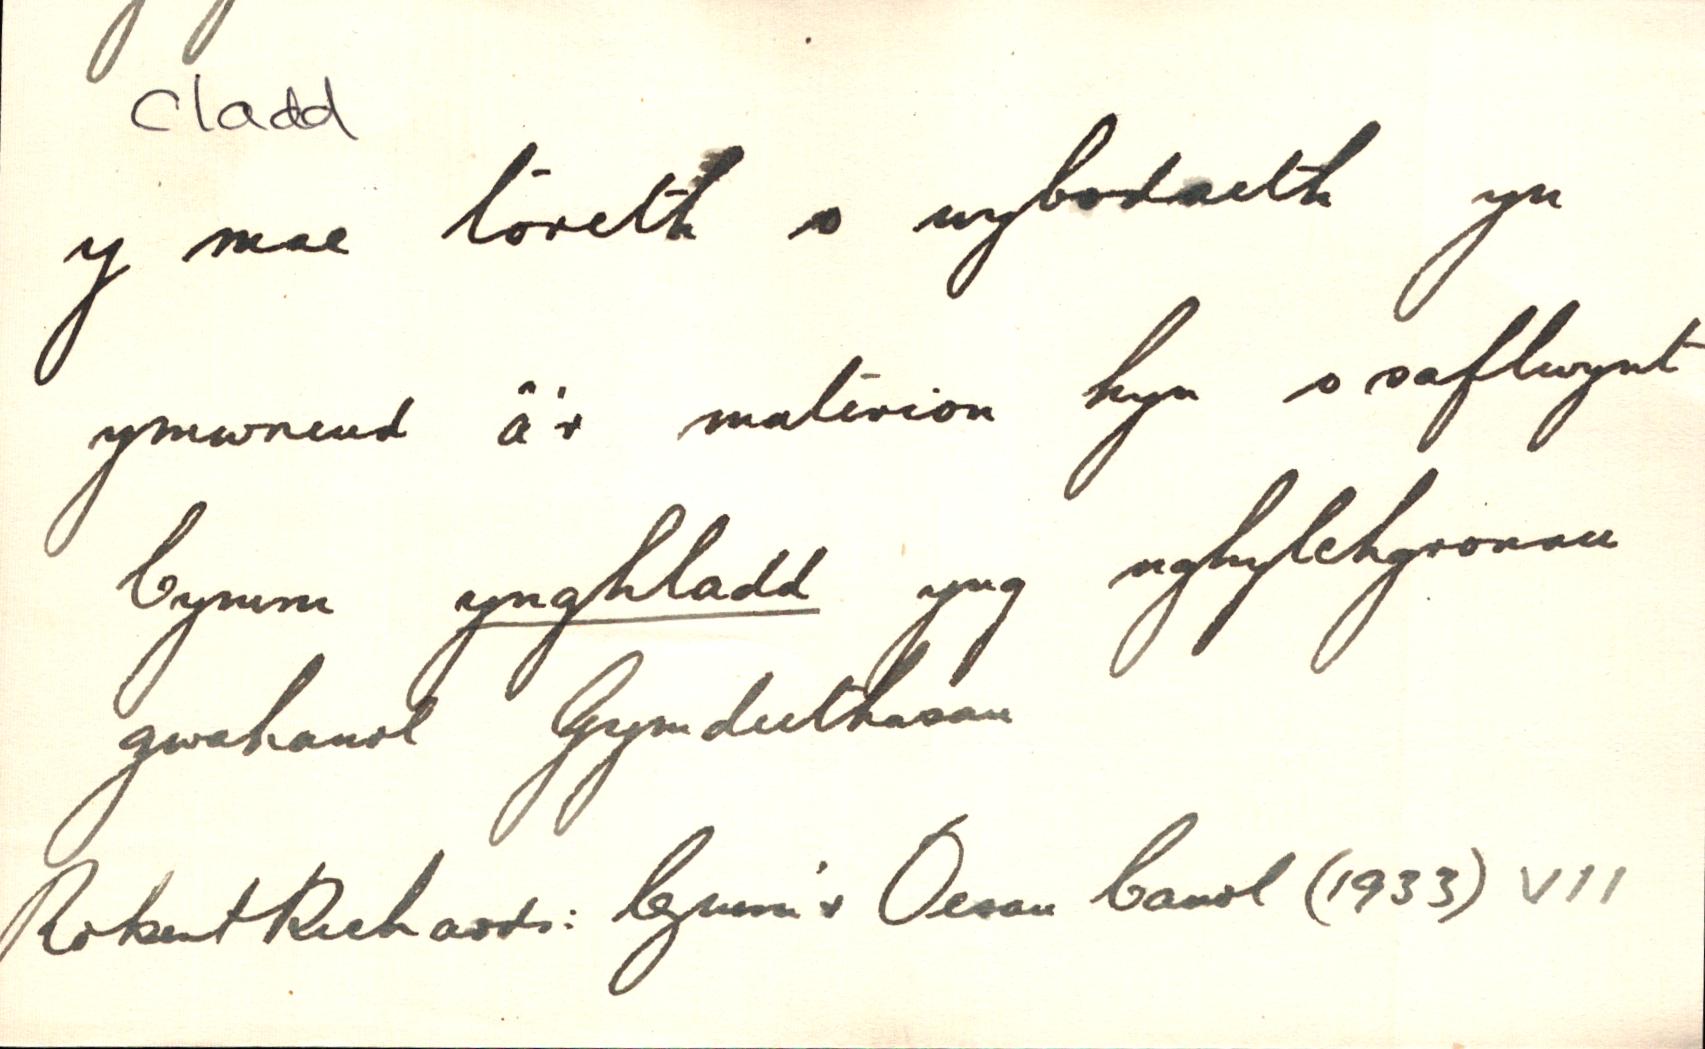 cladd
y mae toreth o wybodaeth yn
ymwneud â'r materion hyn o safbwynt
Cymru ynghladd yng nghylchgronnau
gwahanol Gymdeithasau
Robert Richards: Cymru'r Oesau Canol (1933) VII